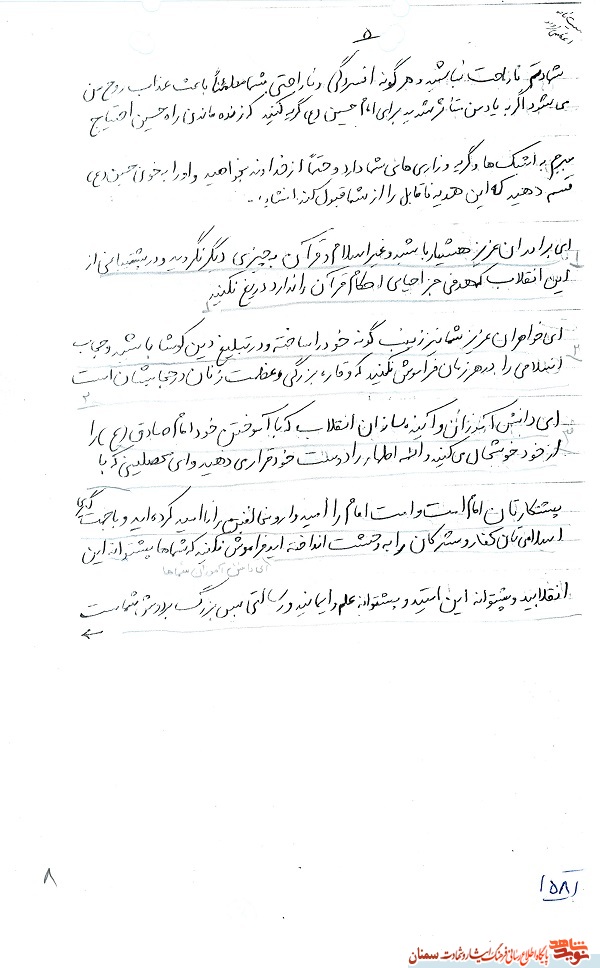 ۵
شهادتم ناراحت نباشید و هرگونه افسردگی و ناراحتی شما مطمئناً باعث عذاب روح من
می‌شود اگر به یاد من متأثر شدید برای امام حسین (ع) گریه کنید که زنده ماندن راه حسین احتیاج
مبرم به اشک‌ها و گریه و زاری‌های شما دارد و حتماً از خداوند بخواهید و او را به خون حسین (ع)
قسم دهید که این هدیه ناقابل را از شما قبول کند انشاء...
ای برادران عزیز هشیار باشید و غیر اسلام و قرآن به چیزی دیگر نگروید و در پشتیبانی از
این انقلاب که هدفی جز احیای احکام قرآن را ندارد دریغ نکنیم
ای خواهران عزیز شما نیز زینب گونه خود را ساخته و در تبلیغ دین کوشا باشید و حجاب
اسلامی را در هر زمان فراموش نکنید که وقار، بزرگی و عظمت زنان در حجابشان است
ای دانش آموزان و آینده سازان انقلاب که با آموختن خود امام صادق (ع) را
از خود خوشحال می‌کنید و ائمه اطهار را دوست خود قرار می دهید و ای محصلینی که با
پشتکارتان امام است و امت امام را امید وارونی لغیم را ناامید کرده‌اید و با جهت گیری
اسلامی‌تان کفار و مشرکان را به وحشت انداخته اید فراموش نکنید که شماها پشتوانه این
ای دانش آموزان شماها
انقلابید و پشتوانه این امتید و پشتوانه علم و ایمانید و رسالتی بس بزرگ بر دوش شماست
۸
۱۵۸۱
نوید شاهد
پایگاه اطلاع رسانی فرهنگ ایثار و شهادت سمنان